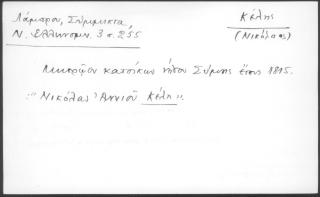 Λάμπρου, Σύμμικτα,
Ν. Ελληνομν. 3 σ. 255
Κέλης
(Νικόλαος)
κατοίκων νήσου Σύμης έτους 1815.
"Νικόλας Αννιού Κέλη".